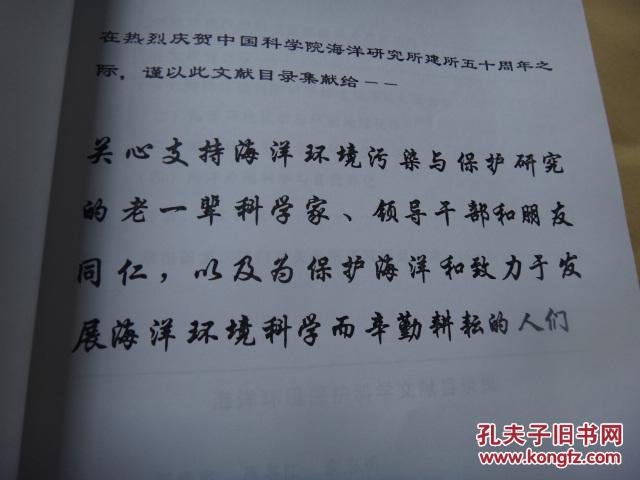 在热烈庆贺中国科学院海洋研究所建所五十周年之
际，谨以此文献目录集献给－－
关心支持海洋环境污染与保护研究
的老一辈科学家、领导干部和朋友
同仁，以及为保护海洋和致力于发
展海洋环境科学而辛勤耕耘的人们
孔夫子旧书网
www.kongfz.com